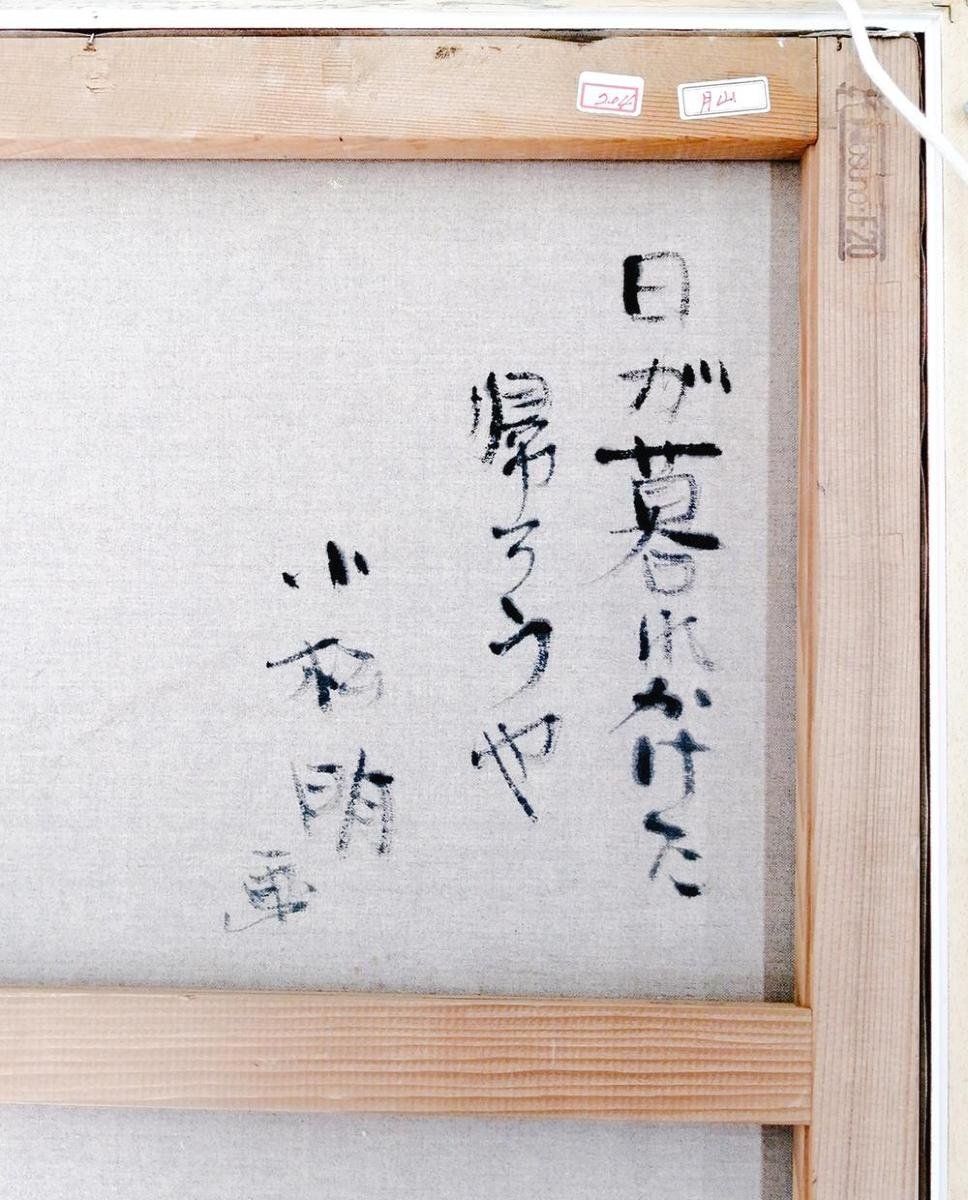 月山
F20
日が暮れかけた
帰ろうや
小松明
画